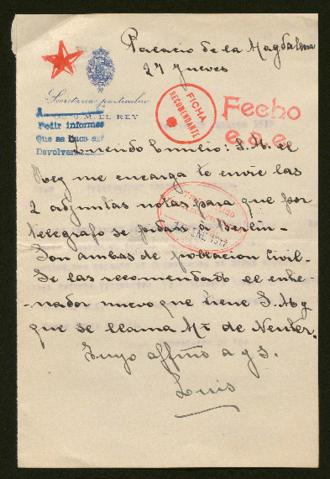 Palacio de la Magdalena
27 jueves
Secretaría particular
DE S. M. EL REY
A
Pedir informes
Que se
Devolver
FICHA
RECOMENDANTE
Fecho
e.s.e.
Querido Emilio: S. M. el
Rey me encarga te envíe las
2 adjuntas notas para que por
telégrafo se pidan a Berlin-
Son ambas de poblacion civil-
Se las recomendado el entre-
nador nuevo que tiene S. M. y
que se llama Mr. de Neuter.
Tuyo affmo a y s.
Luis